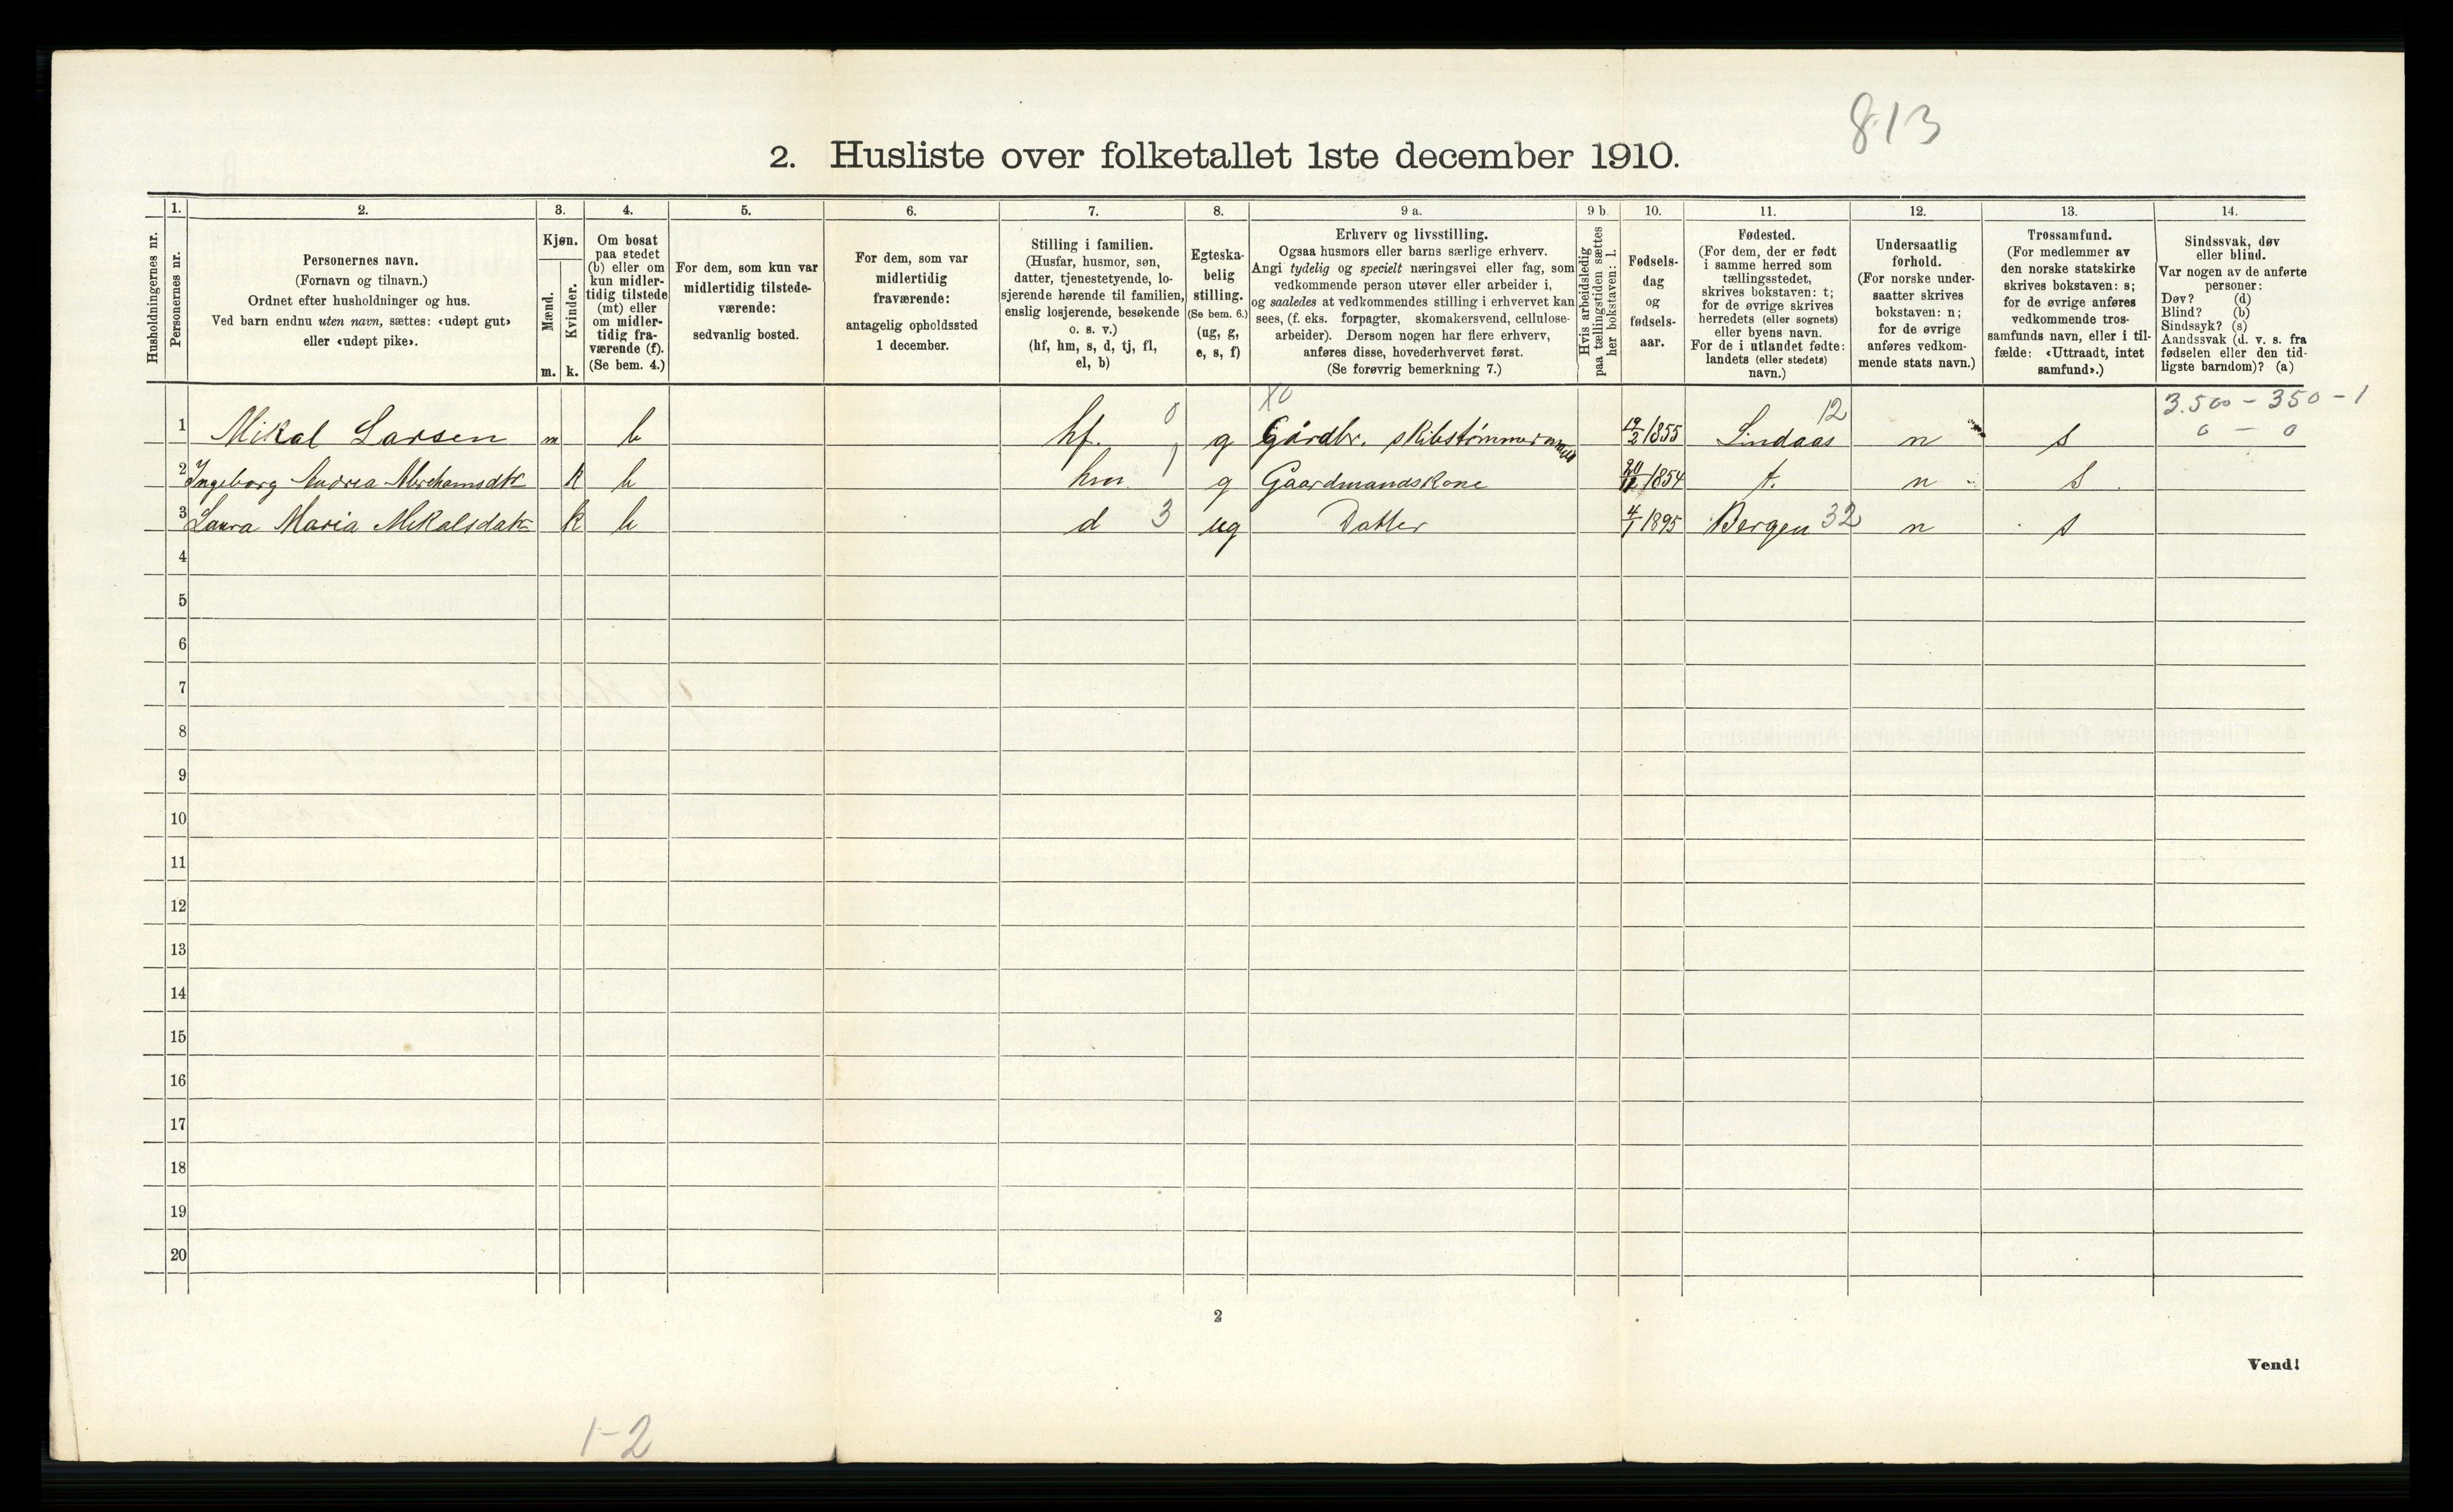 813
2. Husliste over folketallet 1ste december 1910.
Husholdningernes nr.
1.
Personernes nr.
2.
Personernes navn.
(Fornavn og tilnavn.)
Ordnet efter husholdninger og hus.
Ved barn endnu uten navn, sættes: «udøpt gut»
eller «udøpt pike».
3.
Kjøn.
Mænd.
Kvinder.
m. k.
4.
Om bosat
paa stedet
(b) eller om
kun midler-
tidig tilstede
(mt) eller
om midler-
tidig fra-
værende (f).
(Se bem. 4.)
5.
For dem, som kun var
midlertidig tilstede-
værende:
sedvanlig bosted.
6.
For dem, som var
midlertidig
fraværende:
antagelig opholdssted
1 december.
7.
Stilling i familien.
(Husfar, husmor, søn,
datter, tjenestetyende, lo-
sjerende hørende til familien,
enslig losjerende, besøkende
o. s. v.)
(hf, hm, s, d, tj, fl,
el, b)
8.
Egteska-
belig
stilling.
(Se bem. 6.)
(ug, g,
e, s, f)
9 a.
Erhverv og livsstilling.
Ogsaa husmors eller barns særlige erhverv.
Angi tydelig og specielt næringsvei eller fag, som
vedkommende person utøver eller arbeider i,
og saaledes at vedkommendes stilling i erhvervet kan
sees, (f. eks. forpagter, skomakersvend, cellulose-
arbeider). Dersom nogen har flere erhverv,
anføres disse, hovederhvervet først.
(Se forøvrig bemerkning 7.)
9 b.
Hvis arbeidsledig
paa tællingstiden sættes
her bokstaven: l.
10.
Fødsels-
dag
og
fødsels-
aar.
11.
Fødested.
(For dem, der er født
i samme herred som
tællingsstedet,
skrives bokstaven: t;
for de øvrige skrives
herredets (eller sognets)
eller byens navn.
For de i utlandet fødte:
landets (eller stedets)
navn.)
12.
Undersaatlig
forhold.
(For norske under-
saatter skrives
bokstaven: n;
for de øvrige
anføres vedkom-
mende stats navn.)
13.
Trossamfund.
(For medlemmer av
den norske statskirke
skrives bokstaven: s;
for de øvrige anføres
vedkommende tros-
samfunds navn, eller i til-
fælde: «Uttraadt, intet
samfund».)
14.
Sindssvak, døv
eller blind.
Var nogen av de anførte
personer:
Døv? (d)
Blind? (b)
Sindssyk? (s)
Aandssvak (d. v. s. fra
fødselen eller den tid-
ligste barndom)? (a)
X0 12 3.500 - 350 - 1
1 Mikal Larsen m b hf. 0 g Gårdbr. skibstømmermand 19/2 1855 Lindaas n s 0 - 0
2 Ingeborg Andrea Abrehamsdtr k b hm 1 g Gaardmandskone 20/12 1854 t. n s
3 Laura Maria Mikalsdatr k b d 3 ug Datter 4/1 1895 Bergen 32 n s
4
5
6
7
8
9
10
11
12
13
14
15
16
17
18
19
20
2
Vend!
1-2